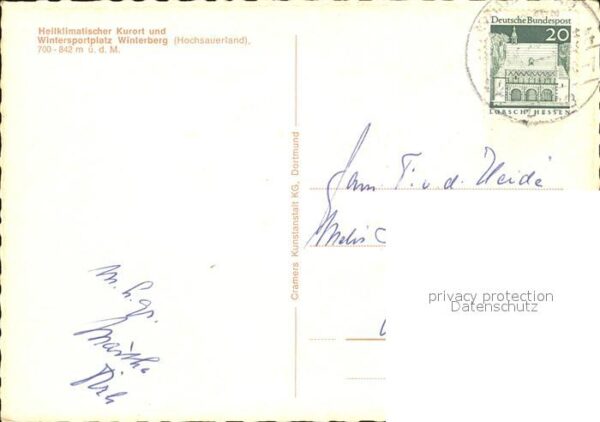 Heilklimatischer Kurort und
Wintersportplatz Winterberg (Hochsauerland),
700-842 m ü. d. M.
Deutsche Bundespost
20
LORSCH/HESSEN
Cramers Kunstanstalt KG, Dortmund
Fam. T. v. d. Heide
m. h. gr.
privacy protection
Datenschutz